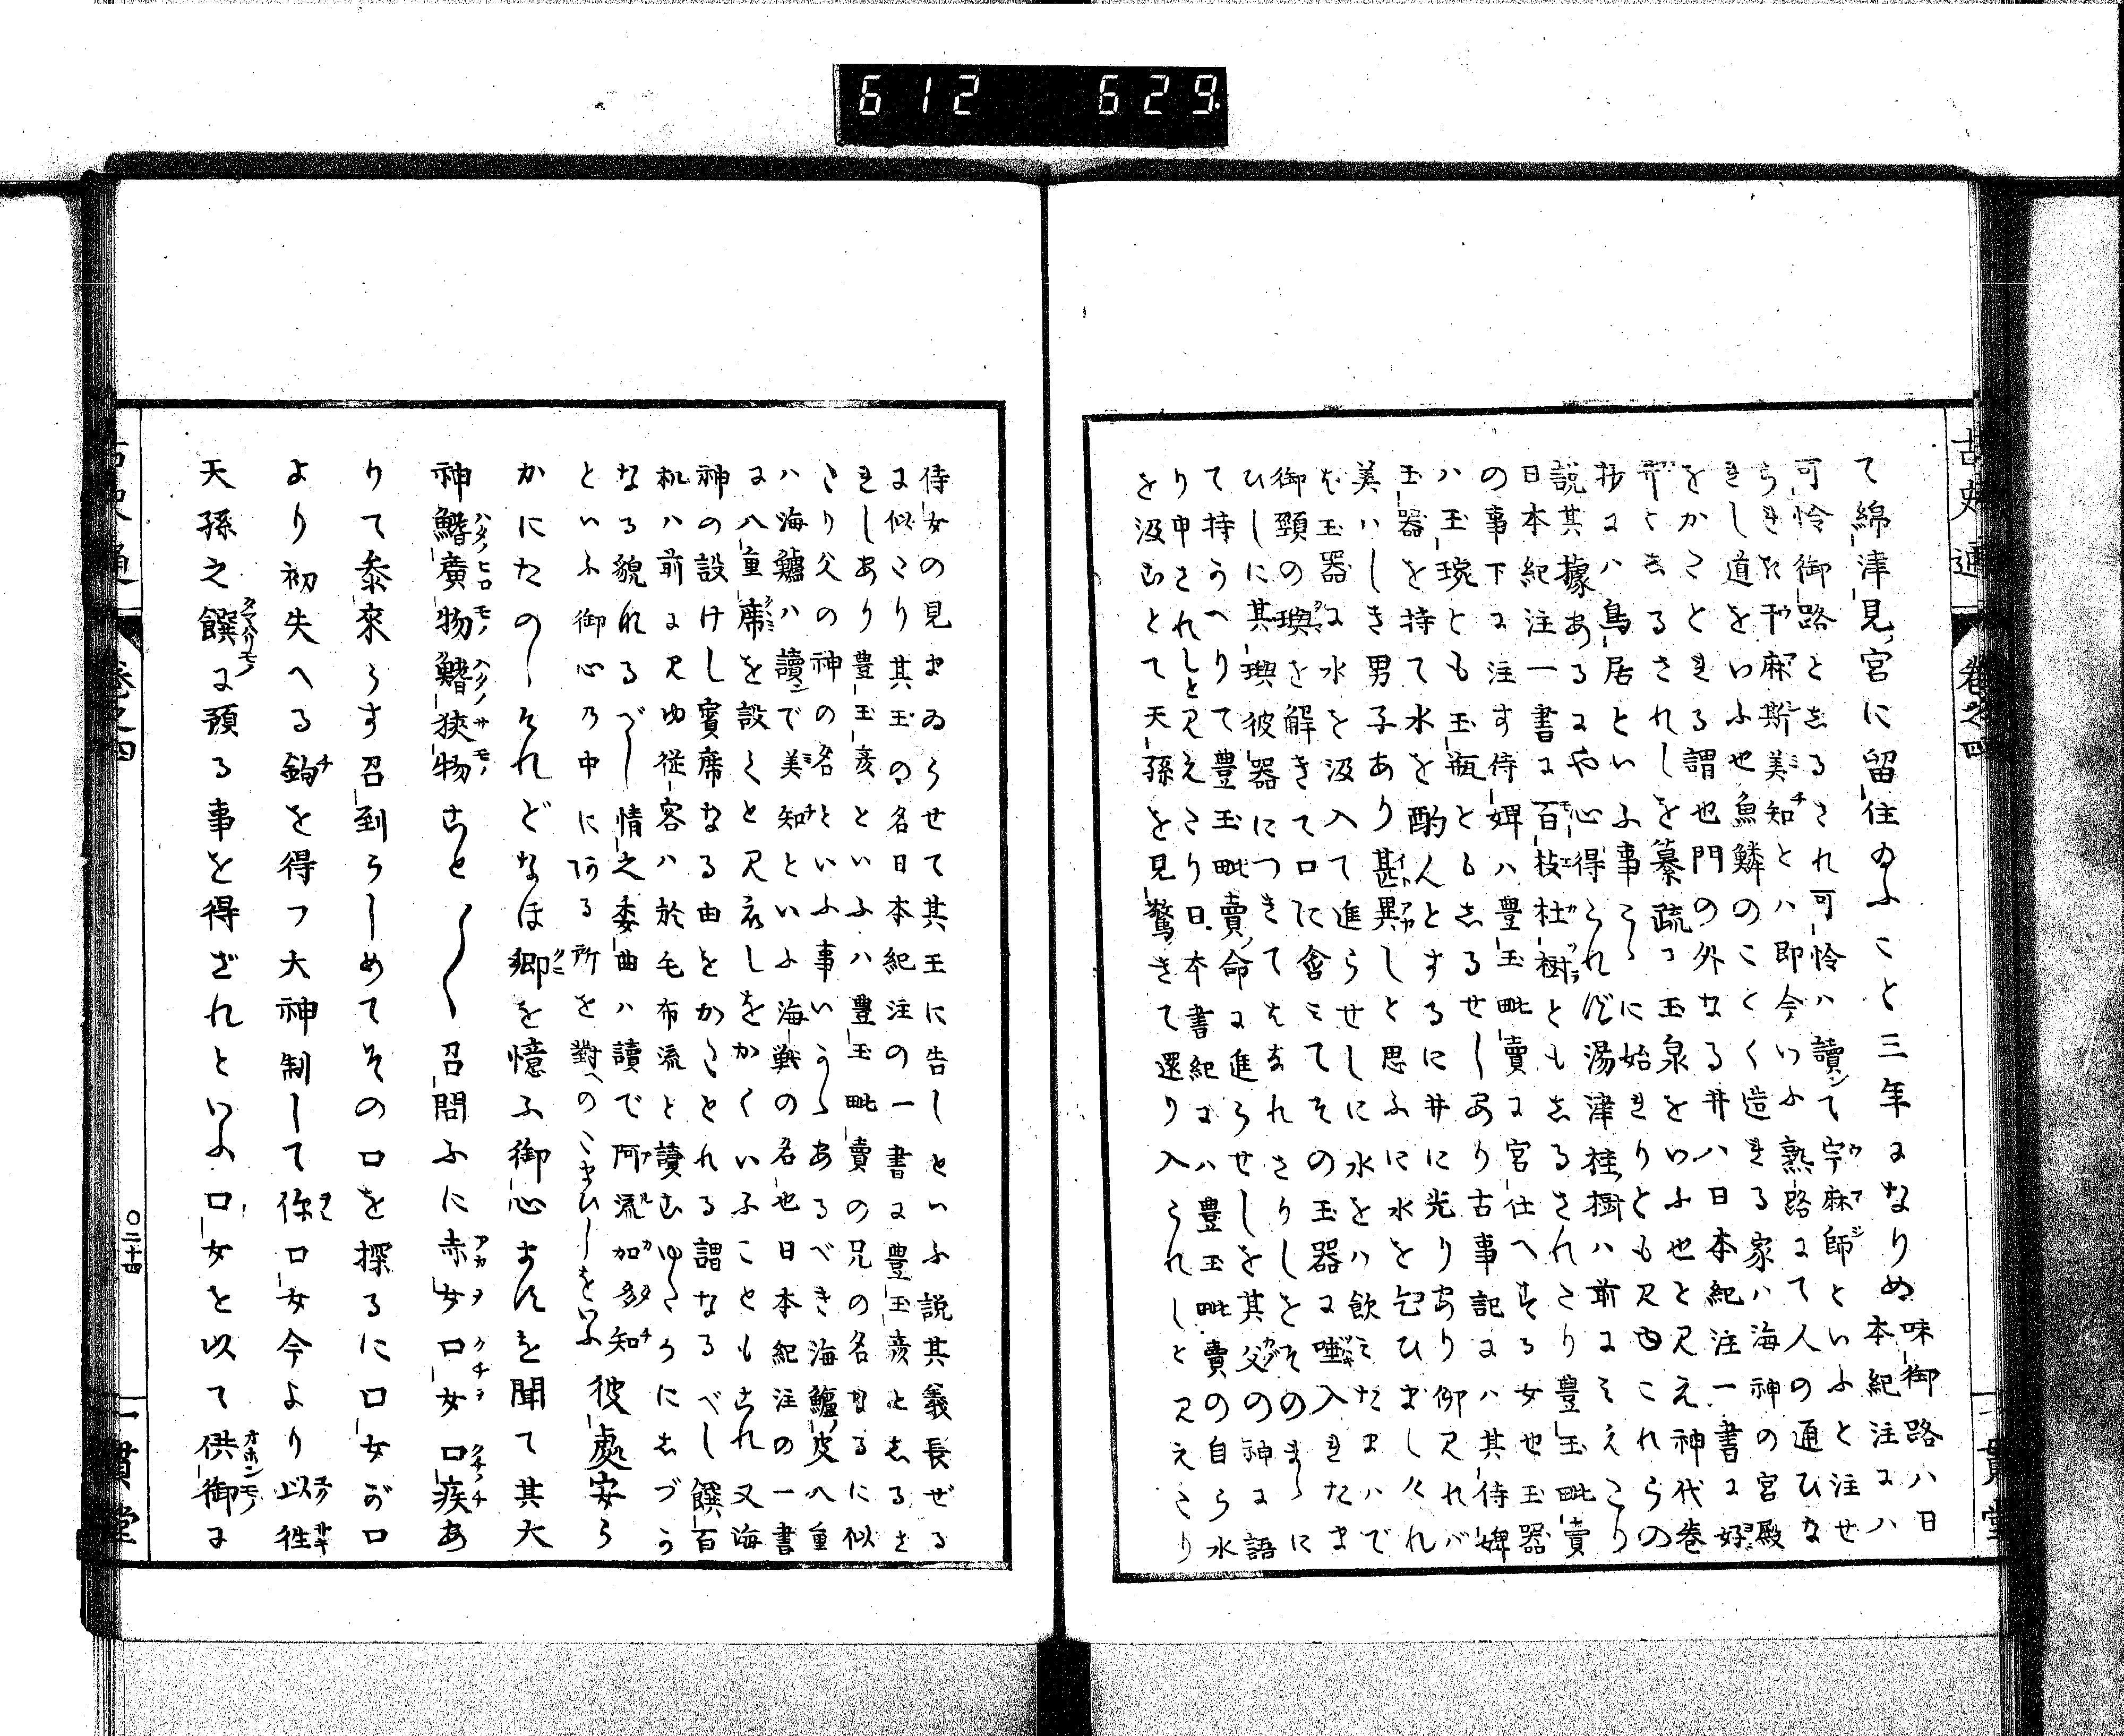 612 629
古史通 卷之四
て綿津見宮に留住のふこと三年になりぬ
味御路ハ日
本紀注にハ
可怜御路としるされ可怜ハ讀て宇麻師といふと注せ
らきた可麻斯美知とハ即今いふ熟路にて人の通ひな
きし道をいふ也魚鱗のことく造れる家ハ海神の宮殿
をかさときる謂也門の外なる井ハ日本紀注一書に好
井としるされしを纂疏に玉泉をいふ也と見え神代巻
抄にハ鳥居といふ事こゝに始れりとも見ゆこれらの
説其據あるにや心得られず湯津桂樹ハ前にみえたり
日本紀注一書に百枝杜樹ともしるされたり豊玉毗賣
の事下に注す侍婢ハ豊玉毗賣に宮仕へする女也玉器
ハ玉琬とも玉瓶ともしるせしあり古事記にハ其侍婢
玉器を持て水を酌んとするに井に光りあり仰見れバ
美ハしき男子あり甚異しと思ふに水を乞ひましくれ
ば玉器に水を汲入て進らせしに水をハ飲みたまハで
御頸の璵を解きて口に含みてその玉器に唾入れたま
ひしに其璵彼器につきてはなれさりしとそのまゝに
て持うへりて豊玉毗賣命に進らせしを其父の神に語
り申されしと見えたり日本書紀にハ豊玉毗賣の自ら水
を汲むとて天孫を見驚きて還り入られしと見えたり
一貫堂
侍女の見まゐらせて其王に告しといふ説其義長ぜる
に似たり其玉の名日本紀注の一書に豊玉彦としるさ
れしあり豊玉彦といふハ豊玉毗賣の兄の名なるに似
たり父の神の名といふ事いかゝあるべき海驢皮八重
ハ海驢ハ讀で美知といふ海戦の名也日本紀注の一書
に八重席を設くと見えしをかくいふこともあれ又海
神の設けし賓席なる由をかたとれる謂なるべし饌百
机ハ前に見ゆ従容ハ於毛布流と讀むゆたかにしづか
なる貌なるべし情之委曲ハ讀で阿流加多知
といふ御心の中にある所を對への給ひしをいふ
彼處安ら
かにたのしけれどなほ郷を憶ふ御心まれを聞て其大
神鰭廣物鰭狹物ことことく召問ふに赤女口女口疾あ
りて参來らす召到らしめてその口を探るに口女が口
より初失へる鉤を得つ大神制して你口女今より以徃
天孫之饌に預る事を得ざれといふ口女を以て供御に
古史通 卷之四
〇二十四
一貫堂